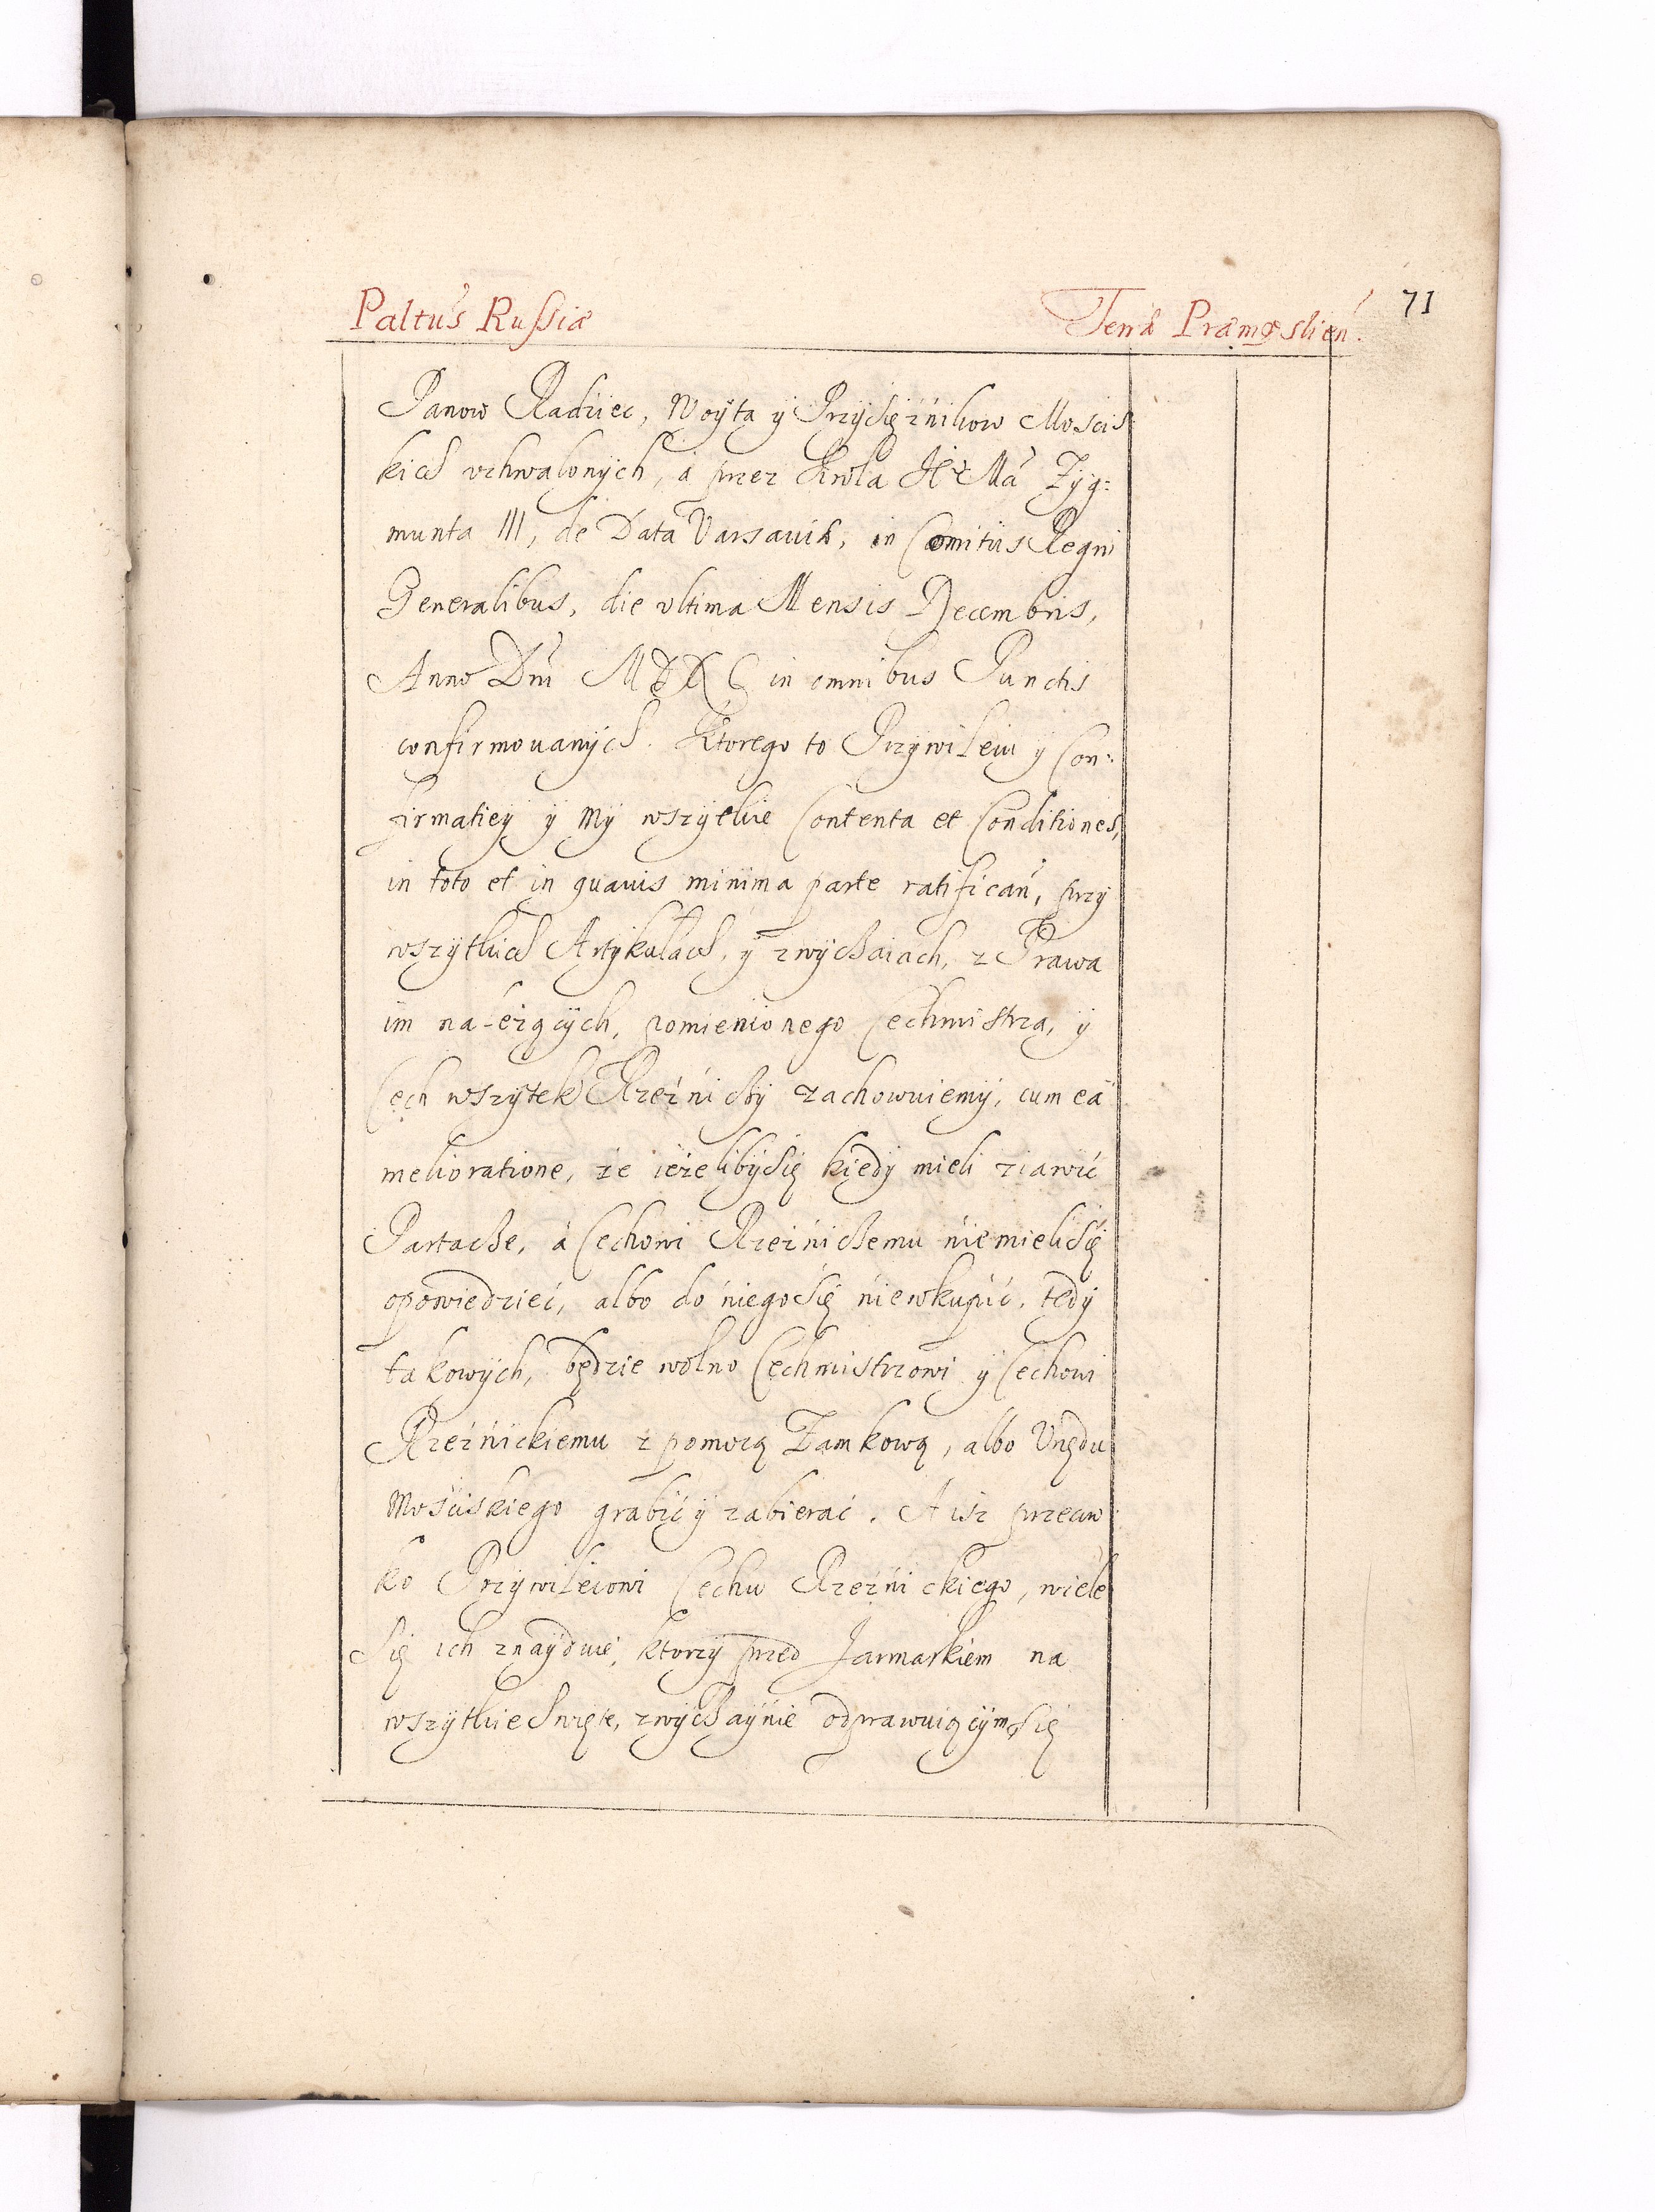 Paltus Russiæ
Terræ Præmysliен. 71
Panow Radziec, Woyta ÿ Przÿsięźnikow Mosćis:
kich vchwalonÿch, á przez Krola JE° Má Zÿg:
munta III, de Data Varsaviæ, in Comitiis Regni
Generalibus, die vltima Mensis Decembris,
Anno Dni MDXC in omnibus Punctis
confirmovanÿch. Ktorego to Przÿwileiu ÿ Con:
firmatieÿ ÿ mÿ wszÿtkie Contenta et Conditiones,
in toto et in quavis minima parte ratifican, przÿ
wszÿtkich Artÿkułach, ÿ zwÿchaiach, z Prawa
im nałeżącÿch, pomienionego Cechmistrza, ÿ
Cech wszÿtek Rzeźnickÿ zachowuiemÿ, cum ea
melioratione, że ieżelibÿ się kiedÿ mieli ziawić
Partacze, á Cechowi Rzeźnickiemu niemieli się
opowiedzieć, albo do niego się niewkupić, tedÿ
takowÿch, będzie wolno Cechmistrzowi ÿ Cechowi
Rzeźnickiemu z pomocą Zamkową, albo Vrzędu
Mosćiskiego grabić ÿ zabierać. A isz przeciw
ko Przÿwileiowi Cechu Rzeźnickiego, wiele
się ich znaÿduie, ktorzÿ przed Jarmarkiem na
wszÿtkie Swięte, zwÿchaÿnie odprawuiącÿm się